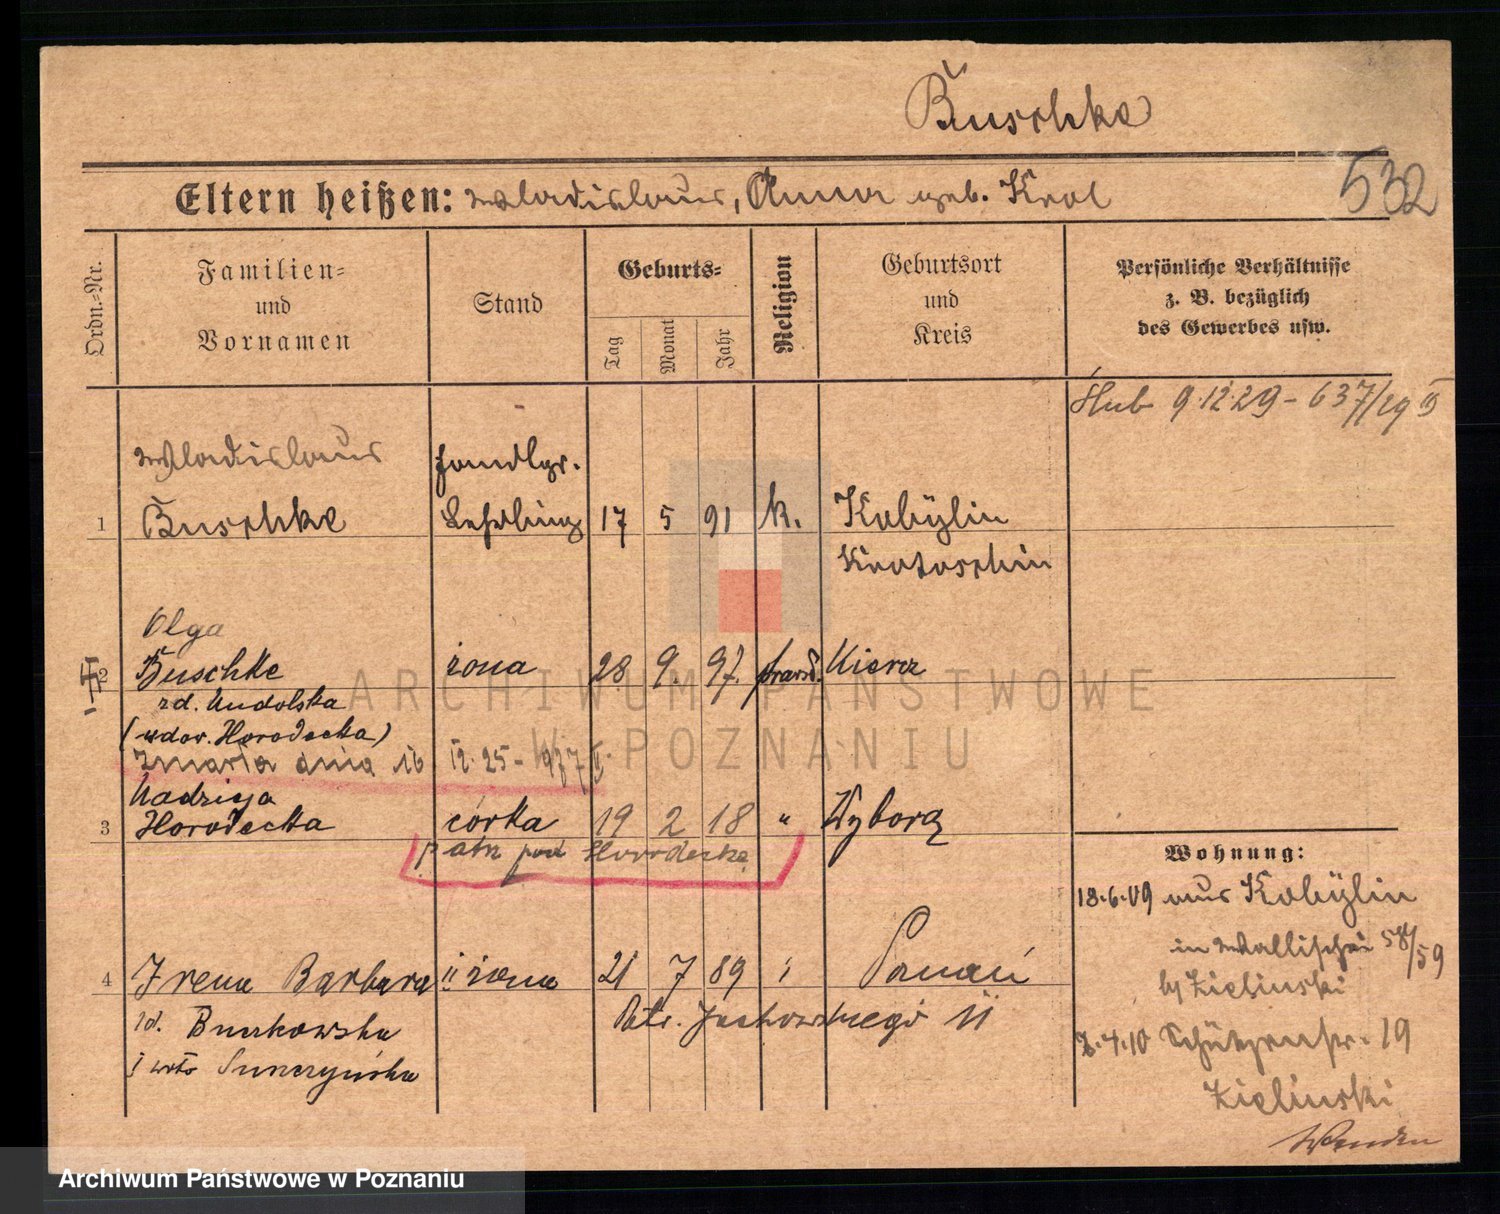 Buschke
532
Eltern heißen: Wladislaus, Anna geb. Krol
Ordn.-Nr.
Familien-
und
Vornamen
Stand
Geburts-
Tag
Monat
Jahr
Religion
Geburtsort
und
Kreis
Persönliche Verhältnisse
z. B. bezüglich
des Gewerbes usw.
Ślub 9.12.29 - 637/29 II
Wladislaus
Handlgs.
1 Buschke Lehrling 17 5 91 k. Kobylin
Krotoschin
Olga
2 Buschke żona 28. 9. 97. prawsł. Kiercz
zd. Undolska
(wdow. Horodecka)
Zmarła dnia 16 12.25 -
Nadzieja
3 Horodecka córka 19 2 18 " Wyborg
patrz pod Horodecka
4 Irena Barbara II żona 21 7 89 Poznań
zd. Buczkowska
I voto
Wohnung:
18.6.09 aus Kobylin
in Wallischei 58/59
by Zielinski
7.4.10 Schützenstr. 19
Zielinski
ARCHIWUM PAŃSTWOWE
W POZNANIU
Archiwum Państwowe w Poznaniu